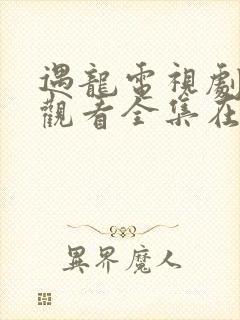 遇龍電視劇
觀看全集在
異界魔人